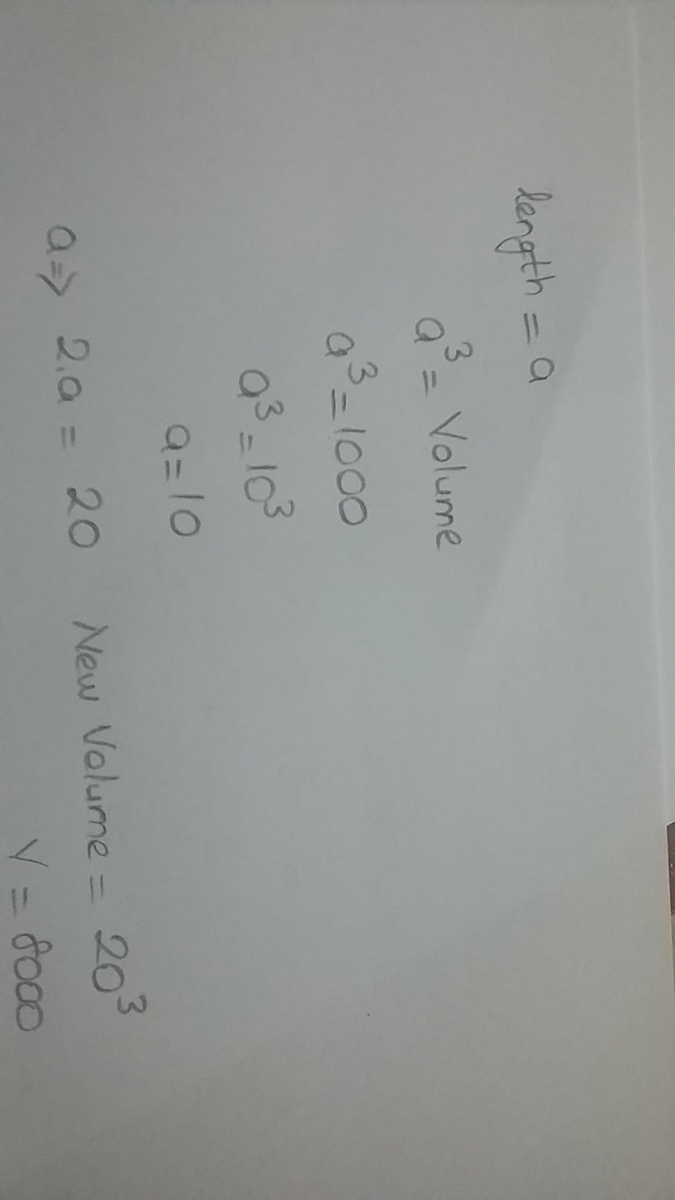 length = a
a³ = Volume
a³ = 1000
a³ = 10³
a = 10
a => 2.a = 20 New Volume = 20³
V = 8000